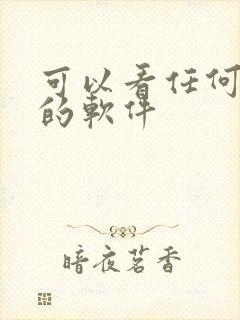 可以看任何
的軟件
暗夜茗香